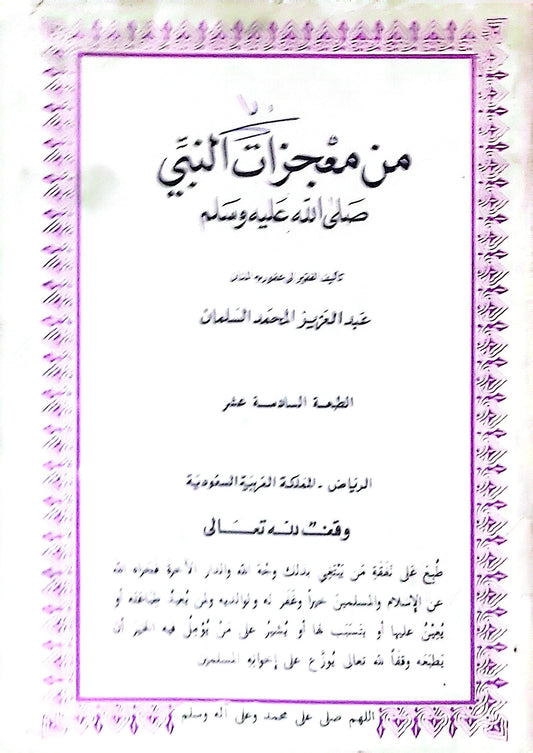 من معجزات النبي
صلى الله عليه وسلم
تأليف الفقير إلى عفو ربه المنان
عبد العزيز المحمد السلمان
الطبعة السادسة عشر
الرياض - المملكة العربية السعودية
وقف لله تعالى
طُبِعَ عَلى نَفَقَةِ مَن يَبْتَغِي بذلك وجْهَ الله والدار الآخرة فجزاه الله
عن الإسلام والمسلمين خيراً وغَفَر له ولوالديه ولمن يُعيدُ طباعَته أو
يُعِيْنُ عليها أو يتَسَبَب لها أو يُشير على مَنْ يُؤَمِلُ فيه الخير أن
يَطْبَعَه وقفاً لله تعالى يُوزَّع على إخوانِه المسلمين
اللهم صلى على محمد وعلى آله وسلم